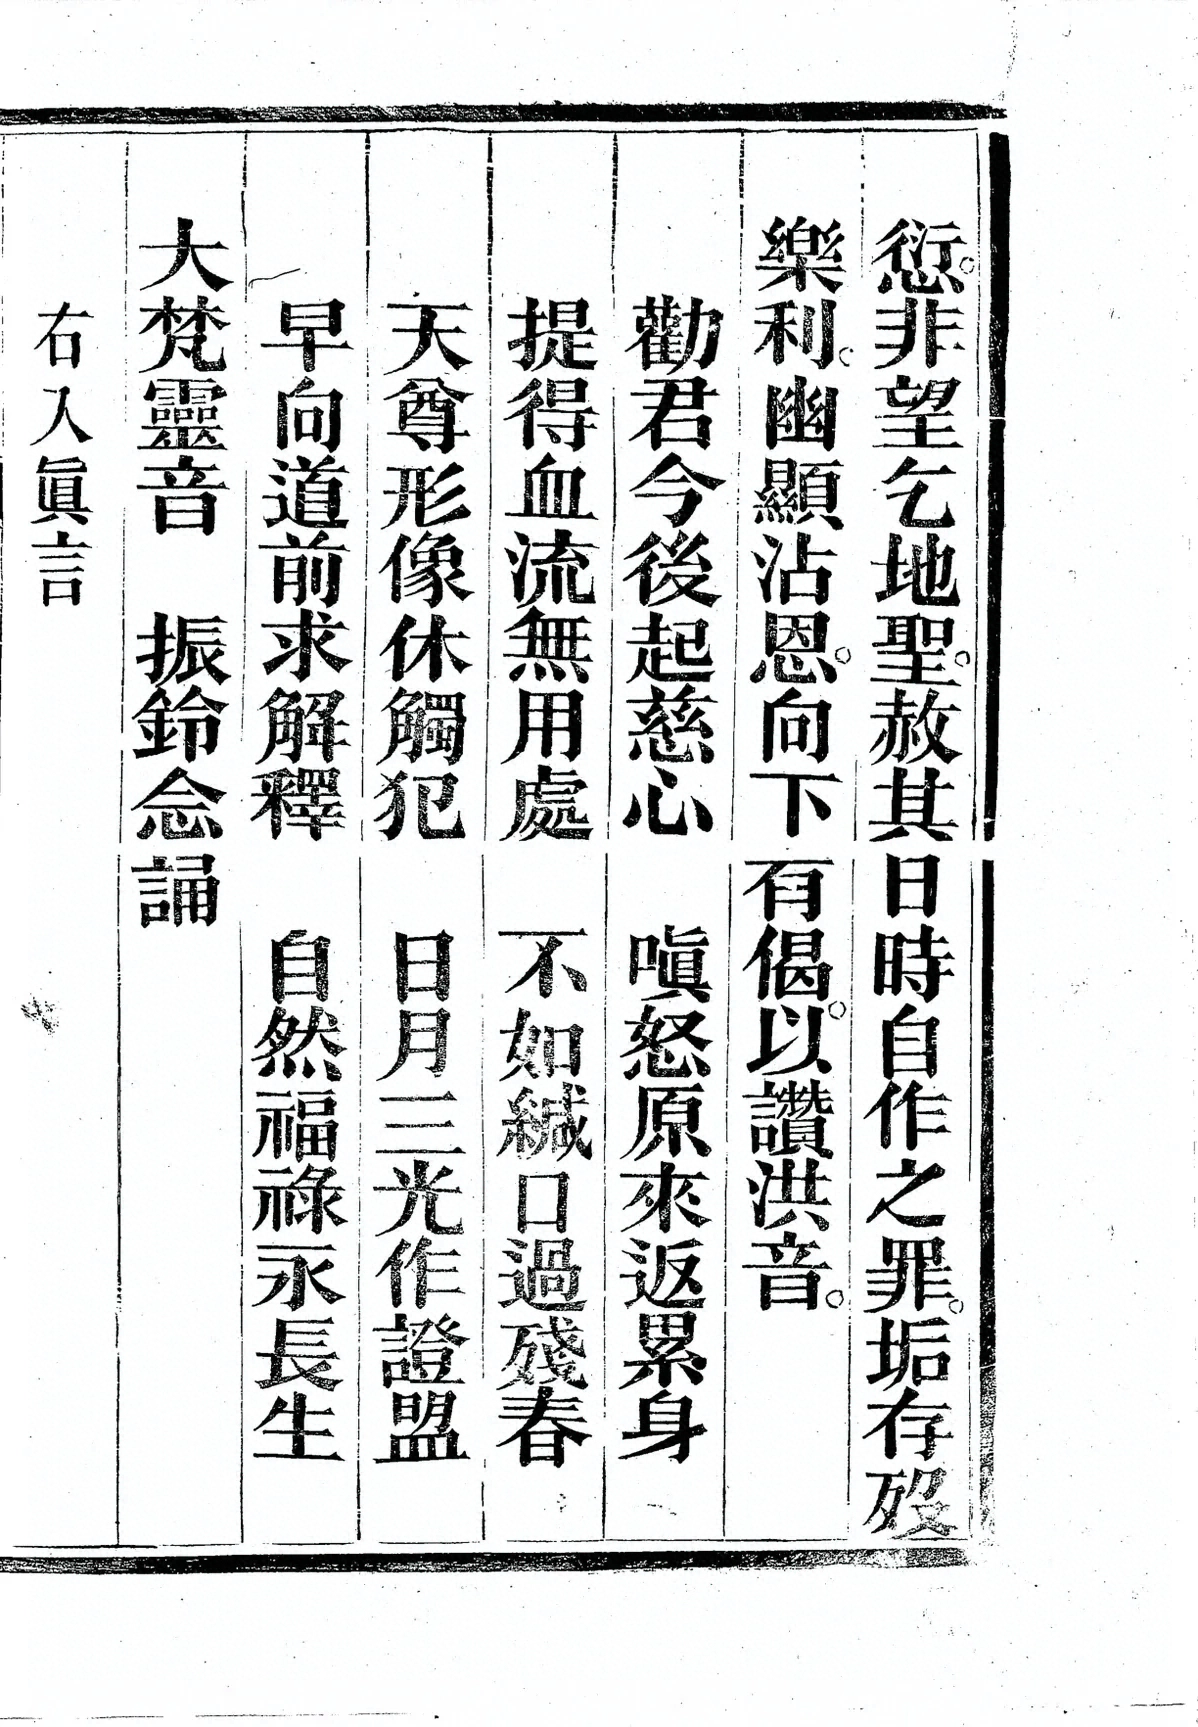 愆。非望乞地聖。赦其日時自作之罪。垢存歿
樂利。幽顯沾恩。向下有偈。以讚洪音。
勸君今後起慈心　嗔怒原來返累身
提得血流無用處　不如緘口過殘春
天尊形像休觸犯　日月三光作證盟
早向道前求解釋　自然福祿永長生
大梵靈音　振鈴念誦
右入眞言